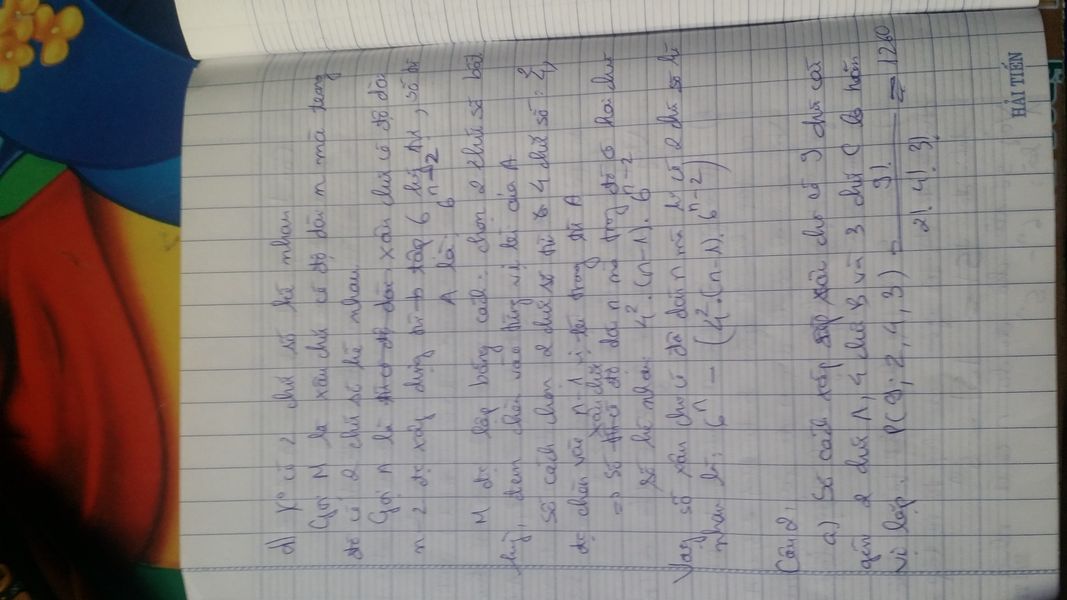 d) Ko có 2 chữ số kề nhau
Gọi M là xâu chữ có độ dài n mà trong
đó có 2 chữ số kề nhau.
Gọi A là xâu chữ có độ dài
n-2 đc xây dựng từ tập 6 chữ , số
A là: 6^{n-2}
M đc lập bằng cách: chọn 2 chữ số bất
kỳ, đem chèn vào từng vị trí của A
Số cách chọn 2 chữ số từ 4 chữ số: 4^2,
đc chèn vào n-1 vị trí trong từ A
=> Số xâu chữ có độ dài n mà trong đó có hai chữ
số kề nhau: 4^2.(n-1).6^{n-2}
Vậy số xâu chữ có độ dài n mà ko có 2 chữ số kề
nhau là: 6^n - (4^2.(n-1).6^{n-2})
Câu 2:
a) Số cách xếp xâu chữ có 9 chữ cái
gồm 2 chữ A, 4 chữ B và 3 chữ C là hoán
vị lặp. P(9; 2, 4, 3) = 9! / 2! 4! 3! = 1260
HẢI TIẾN